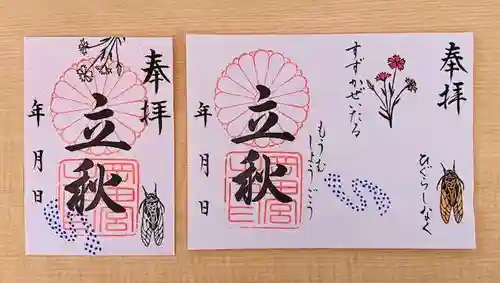 奉拝
立秋
年月日
奉拝
すずかぜいたる
ひぐらしなく
もうむ
しょうごう
立秋
年月日